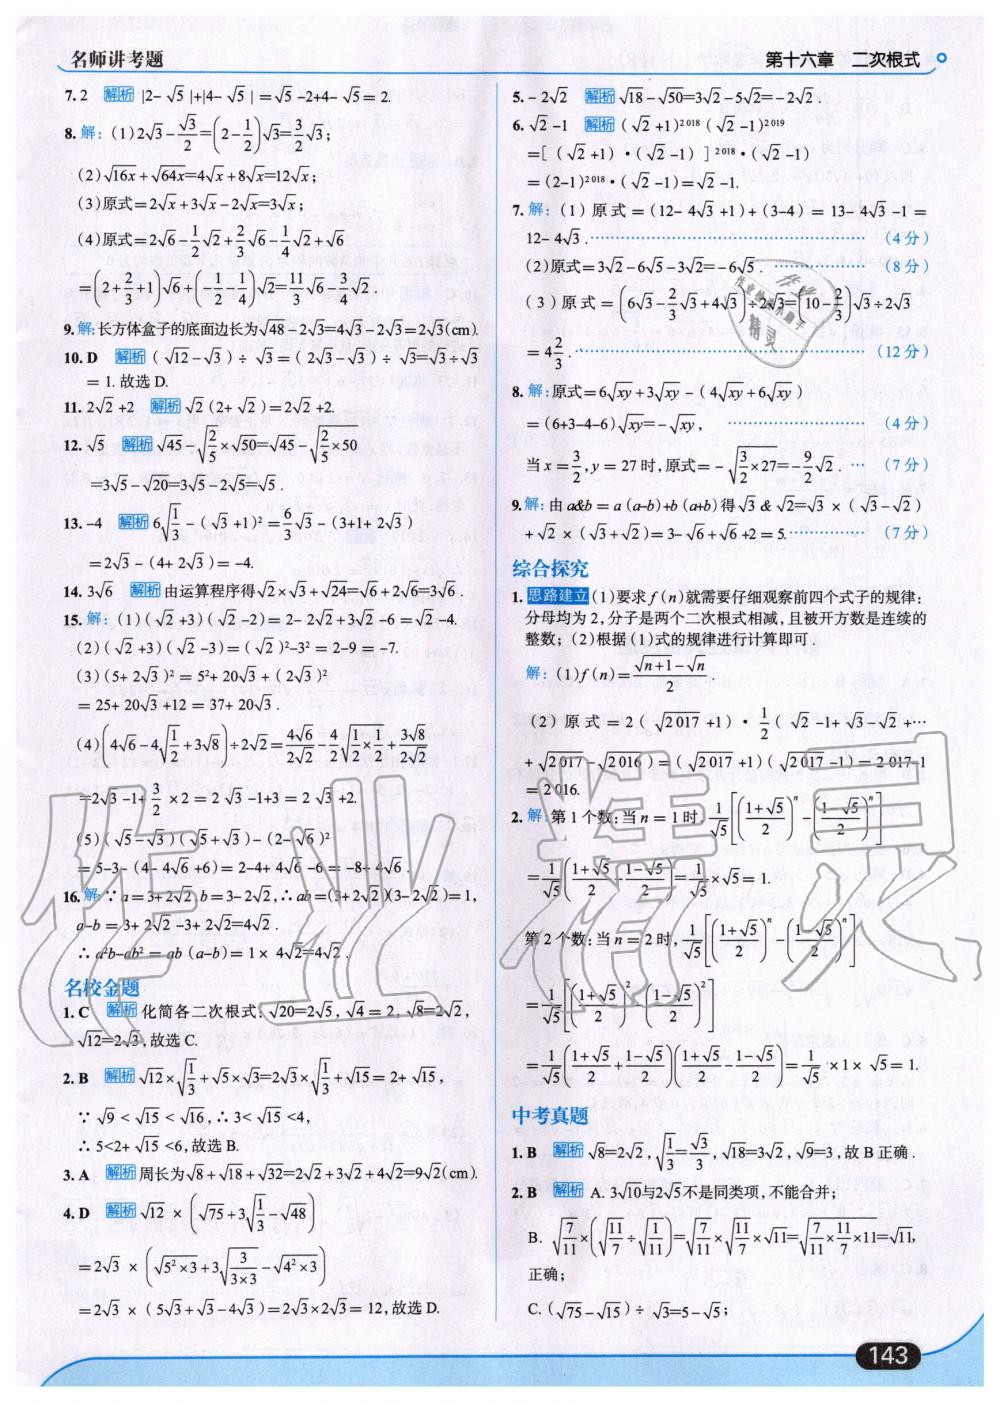 名师讲考题
第十六章 二次根式
7. 2 解析 |2-√5|+|4-√5|=√5-2+4-√5=2.
8. 解:(1)2√3-√3/2=(2-1/2)√3=3/2√3;
(2)√16x+√64x=4√x+8√x=12√x;
(3)原式=2√x+3√x-2√x=3√x;
(4)原式=2√6-1/2√2+2/3√6-1/4√2+√6
=(2+2/3+1)√6+(-1/2-1/4)√2=11/3√6-3/4√2.
9. 解:长方体盒子的底面边长为√48-2√3=4√3-2√3=2√3(cm).
10. D 解析 (√12-√3)÷√3=(2√3-√3)÷√3=√3÷√3
=1.故选D.
11. 2√2+2 解析 √2(2+√2)=2√2+2.
12. √5 解析 √45-√(2/5)×√50=√45-√(2/5×50)
=3√5-√20=3√5-2√5=√5.
13. -4 解析 6√(1/3)-(√3+1)²=6/3√3-(3+1+2√3)
=2√3-(4+2√3)=-4.
14. 3√6 解析 由运算程序得√2×√3+√24=√6+2√6=3√6.
15. 解:(1)(√2+3)(√2-2)=2-2√2+3√2-6=√2-4.
(2)(√2+3)(√2-3)=(√2)²-3²=2-9=-7.
(3)(5+2√3)²=5²+20√3+(2√3)²
=25+20√3+12=37+20√3.
(4)(4√6-4√(1/2)+3√8)÷2√2=4√6/2√2-4/2√(1/2×1/2)+3√8/2√2
=2√3-1+3/2×2=2√3-1+3=2√3+2.
(5)(√5-√3)(√5+√3)-(2-√6)²
=5-3-(4-4√6+6)=2-4+4√6-6=-8+4√6.
16. 解:∵a=3+2√2,b=3-2√2,∴ab=(3+2√2)(3-2√2)=1,
a-b=3+2√2-3+2√2=4√2.
∴a²b-ab²=ab(a-b)=1×4√2=4√2.
名校金题
1. C 解析 化简各二次根式,√20=2√5,√4=2,√8=2√2,
√12=2√3,故选C.
2. B 解析 √12×√(1/3)+√5×√3=2√3×√(1/3)+√15=2+√15,
∵√9<√15<√16,∴3<√15<4,
∴5<2+√15<6,故选B.
3. A 解析 周长为√8+√18+√32=2√2+3√2+4√2=9√2(cm).
4. D 解析 √12×(√75+3√(1/3)-√48)
=2√3×(√(5²×3)+3√(3/(3×3))-√(4²×3))
=2√3×(5√3+√3-4√3)=2√3×2√3=12,故选D.
5. -2√2 解析 √18-√50=3√2-5√2=-2√2.
6. √2-1 解析 (√2+1)²⁰¹⁸(√2-1)²⁰¹⁹
=[(√2+1)·(√2-1)]²⁰¹⁸·(√2-1)
=(2-1)²⁰¹⁸·(√2-1)=√2-1.
7. 解:(1)原式=(12-4√3+1)+(3-4)=13-4√3-1=
12-4√3.……(4分)
(2)原式=3√2-6√5-3√2=-6√5.……(8分)
(3)原式=(6√3-2/3√3+4√3)÷2√3=(10-2/3)√3÷2√3
=4 2/3.……(12分)
8. 解:原式=6√xy+3√xy-(4√xy+6√xy)
=(6+3-4-6)√xy=-√xy,……(4分)
当x=3/2,y=27时,原式=-√(3/2×27)=-9/2√2.…(7分)
9. 解:由a&b=a(a-b)+b(a+b)得√3&√2=√3×(√3-√2)
+√2×(√3+√2)=3-√6+√6+2=5.……(7分)
综合探究
1. 思路建立 (1)要求f(n)就需要仔细观察前四个式子的规律:
分母均为2,分子是两个二次根式相减,且被开方数是连续的
整数;(2)根据(1)式的规律进行计算即可.
解:(1)f(n)=(√n+1-√n)/2
(2)原式=2(√2017+1)·1/2(√2-1+√3-√2+…
+√2017-√2016)=(√2017+1)(√2017-1)=2017-1
=2016.
2. 解:第1个数:当n=1时,1/√5[((1+√5)/2)ⁿ-((1-√5)/2)ⁿ]
=1/√5((1+√5)/2-(1-√5)/2)=1/√5×√5=1.
第2个数:当n=2时,1/√5[((1+√5)/2)ⁿ-((1-√5)/2)ⁿ]
=1/√5[((1+√5)/2)²-((1-√5)/2)²]
=1/√5((1+√5)/2+(1-√5)/2)((1+√5)/2-(1-√5)/2)=1/√5×1×√5=1.
中考真题
1. B 解析 √8=2√2,√(1/3)=√3/3,√18=3√2,√9=3,故B正确.
2. B 解析 A. 3√10与2√5不是同类项,不能合并;
B. √(7/11)×(√(11/7)÷√(1/11))=√(7/11)×√(11/7)×√11=√(7/11×11/7×11)=√11,
正确;
C.(√75-√15)÷√3=5-√5;
143
作业精灵